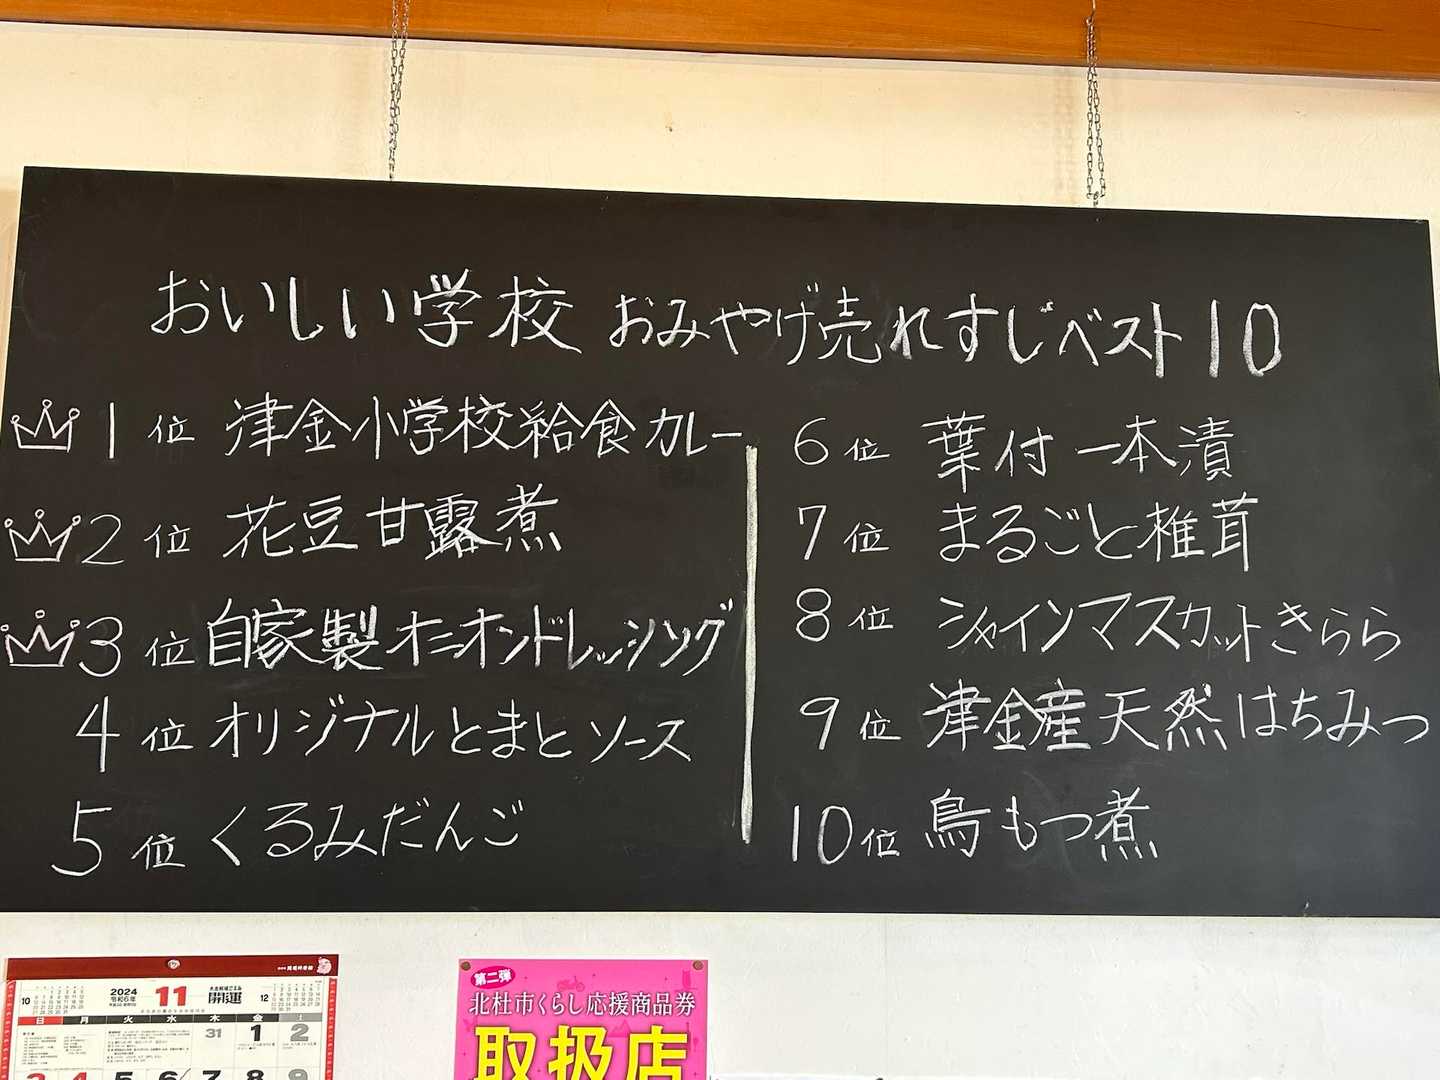 おいしい学校 おみやげ売れすじベスト10
1位 津金小学校給食カレー
2位 花豆甘露煮
3位 自家製オニオンドレッシング
4位 オリジナルとまとソース
5位 くるみだんご
6位 葉付一本漬
7位 まるごと椎茸
8位 シャインマスカットきらら
9位 津金産天然はちみつ
10位 鳥もつ煮
10 2024 令和6年 11 開運 12
日 月 火 水 木 金 土
31 1 2
3 4 5 6 7 8 9
第二弾
北杜市くらし応援商品券
取扱店